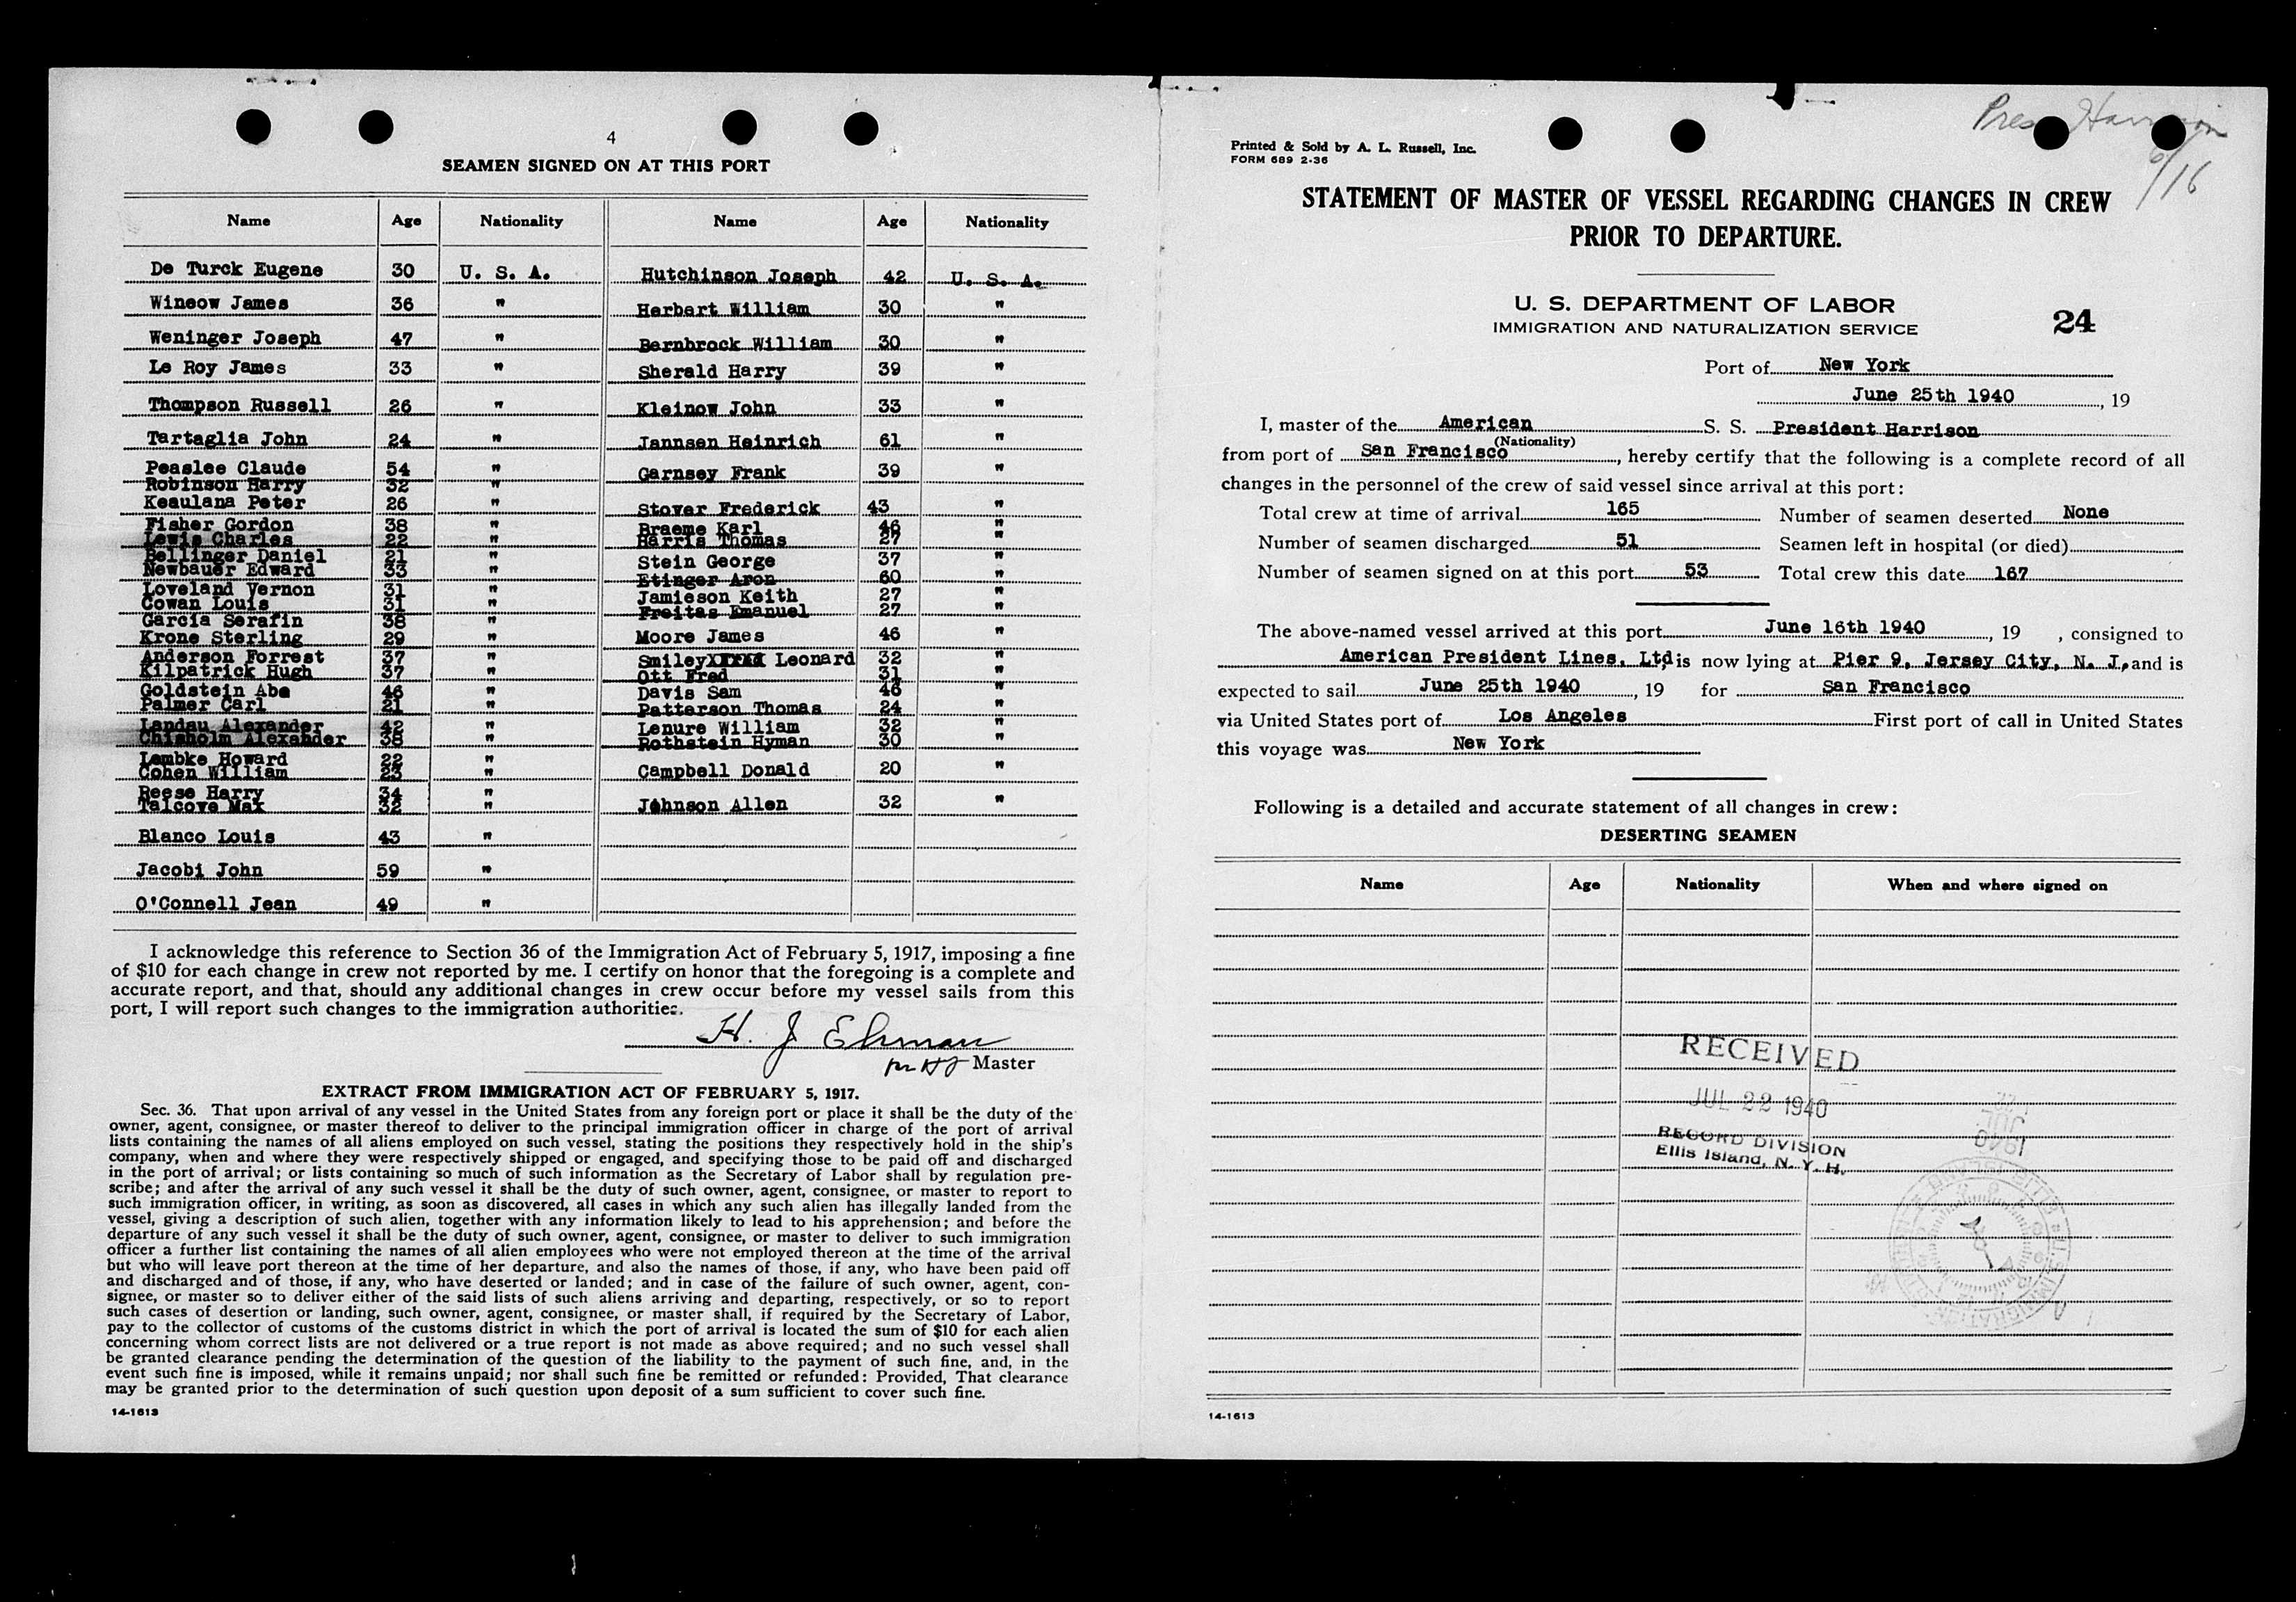 4
SEAMEN SIGNED ON AT THIS PORT
Name Age Nationality Name Age Nationality
De Turck Eugene 30 U. S. A. Hutchinson Joseph 42 U. S. A.
Wineow James 36 " Herbert William 30 "
Weninger Joseph 47 " Bernbrock William 30 "
Le Roy James 33 " Sherald Harry 39 "
Thompson Russell 26 " Kleinow John 33 "
Tartaglia John 24 " Jannsen Heinrich 61 "
Peaslee Claude 54 " Garnsey Frank 39 "
Robinson Harry 32 "
Keaulana Peter 26 " Stover Frederick 43 "
Fisher Gordon 38 " Braeme Karl 46 "
Lewis Charles 22 " Harris Thomas 27 "
Bellinger Daniel 21 " Stein George 37 "
Newbauer Edward 33 " Etinger Aron 60 "
Loveland Vernon 31 " Jamieson Keith 27 "
Cowan Louis 31 " Freitas Emanuel 27 "
Garcia Serafin 38
Krone Sterling 29 " Moore James 46 "
Anderson Forrest 37 " Smiley Leonard 32 "
Kilpatrick Hugh 37 " Ott Fred 31 "
Goldstein Abe 46 " Davis Sam 46 "
Palmer Carl 21 " Patterson Thomas 24 "
Landau Alexander 42 " Lenure William 32 "
Chisholm Alexander 38 " Rothstein Hyman 30 "
Lembke Howard 22 " Campbell Donald 20 "
Cohen William 23 "
Reese Harry 34 " Johnson Allen 32 "
Talcove Max 32 "
Blanco Louis 43 "
Jacobi John 59 "
O'Connell Jean 49 "
I acknowledge this reference to Section 36 of the Immigration Act of February 5, 1917, imposing a fine
of $10 for each change in crew not reported by me. I certify on honor that the foregoing is a complete and
accurate report, and that, should any additional changes in crew occur before my vessel sails from this
port, I will report such changes to the immigration authorities.
H. J Ehman
Master
EXTRACT FROM IMMIGRATION ACT OF FEBRUARY 5, 1917.
Sec. 36. That upon arrival of any vessel in the United States from any foreign port or place it shall be the duty of the
owner, agent, consignee, or master thereof to deliver to the principal immigration officer in charge of the port of arrival
lists containing the names of all aliens employed on such vessel, stating the positions they respectively hold in the ship's
company, when and where they were respectively shipped or engaged, and specifying those to be paid off and discharged
in the port of arrival; or lists containing so much of such information as the Secretary of Labor shall by regulation pre-
scribe; and after the arrival of any such vessel it shall be the duty of such owner, agent, consignee, or master to report to
such immigration officer, in writing, as soon as discovered, all cases in which any such alien has illegally landed from the
vessel, giving a description of such alien, together with any information likely to lead to his apprehension; and before the
departure of any such vessel it shall be the duty of such owner, agent, consignee, or master to deliver to such immigration
officer a further list containing the names of all alien employees who were not employed thereon at the time of the arrival
but who will leave port thereon at the time of her departure, and also the names of those, if any, who have been paid off
and discharged and of those, if any, who have deserted or landed; and in case of the failure of such owner, agent, con-
signee, or master so to deliver either of the said lists of such aliens arriving and departing, respectively, or so to report
such cases of desertion or landing, such owner, agent, consignee, or master shall, if required by the Secretary of Labor,
pay to the collector of customs of the customs district in which the port of arrival is located the sum of $10 for each alien
concerning whom correct lists are not delivered or a true report is not made as above required; and no such vessel shall
be granted clearance pending the determination of the question of the liability to the payment of such fine, and, in the
event such fine is imposed, while it remains unpaid; nor shall such fine be remitted or refunded: Provided, That clearance
may be granted prior to the determination of such question upon deposit of a sum sufficient to cover such fine.
14-1613
Pres Harrison
6/16
Printed & Sold by A. L. Russell, Inc.
FORM 689 2-36
STATEMENT OF MASTER OF VESSEL REGARDING CHANGES IN CREW
PRIOR TO DEPARTURE.
U. S. DEPARTMENT OF LABOR
IMMIGRATION AND NATURALIZATION SERVICE
24
Port of New York
June 25th 1940, 19
I, master of the American S. S. President Harrison
(Nationality)
from port of San Francisco, hereby certify that the following is a complete record of all
changes in the personnel of the crew of said vessel since arrival at this port:
Total crew at time of arrival 165 Number of seamen deserted None
Number of seamen discharged 51 Seamen left in hospital (or died)
Number of seamen signed on at this port 53 Total crew this date 167
The above-named vessel arrived at this port June 16th 1940, 19 , consigned to
American President Lines, Ltd, is now lying at Pier 9, Jersey City, N. J., and is
expected to sail June 25th 1940, 19 for San Francisco
via United States port of Los Angeles First port of call in United States
this voyage was New York
Following is a detailed and accurate statement of all changes in crew:
DESERTING SEAMEN
Name Age Nationality When and where signed on
RECEIVED
JUL 22 1940
RECORD DIVISION
Ellis Island, N. Y. H.
14-1613